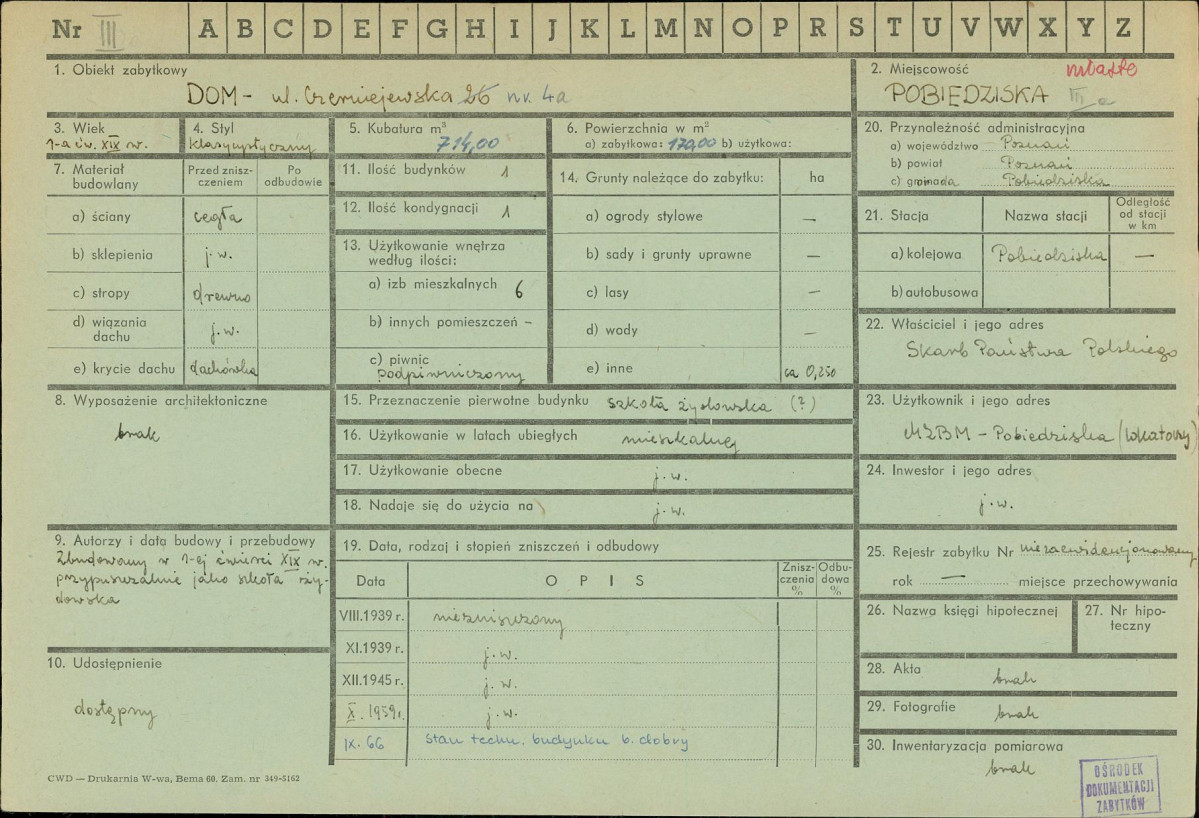 Nr III A B C D E F G H I J K L M N O P R S T U V W X Y Z
1. Obiekt zabytkowy
DOM - ul. Czerniejewska 26 nr. 4a
2. Miejscowość miasto
POBIEDZISKA III a
3. Wiek
1-a ćw. XIX w.
4. Styl
klasycystyczny
5. Kubatura m³
714,00
6. Powierzchnia w m²
a) zabytkowa: 170,00 b) użytkowa:
20. Przynależność administracyjna
a) województwo Poznań
b) powiat Poznań
c) gromada Pobiedziska
7. Materiał budowlany
Przed zniszczeniem
Po odbudowie
a) ściany cegła
b) sklepienia j.w.
c) stropy drewno
d) wiązania dachu j.w.
e) krycie dachu dachówka
11. Ilość budynków 1
12. Ilość kondygnacji 1
13. Użytkowanie wnętrza
według ilości:
a) izb mieszkalnych 6
b) innych pomieszczeń –
c) piwnic
podpiwniczony
14. Grunty należące do zabytku: ha
a) ogrody stylowe —
b) sady i grunty uprawne —
c) lasy —
d) wody —
e) inne ca 0,250
21. Stacja Nazwa stacji Odległość od stacji w km
a) kolejowa Pobiedziska —
b) autobusowa
22. Właściciel i jego adres
Skarb Państwa Polskiego
8. Wyposażenie architektoniczne
brak
15. Przeznaczenie pierwotne budynku szkoła żydowska (?)
16. Użytkowanie w latach ubiegłych mieszkalnej
17. Użytkowanie obecne j.w.
18. Nadaje się do użycia na j.w.
23. Użytkownik i jego adres
MZBM - Pobiedziska (lokatorzy)
24. Inwestor i jego adres
j.w.
9. Autorzy i data budowy i przebudowy
Zbudowany w 1-ej ćwierci XIX w.
przypuszczalnie jako szkoła ży-
dowska
10. Udostępnienie
dostępny
19. Data, rodzaj i stopień zniszczeń i odbudowy
Data OPIS Zniszczenia % Odbudowa %
VIII.1939 r. niezniszczony
XI.1939 r. j.w.
XII.1945 r. j.w.
X.1959r. j.w.
IX.66 Stan techn. budynku b. dobry
25. Rejestr zabytku Nr niezaewidencjonowany
rok — miejsce przechowywania
26. Nazwa księgi hipotecznej
27. Nr hipo-
teczny
28. Akta
brak
29. Fotografie
brak
30. Inwentaryzacja pomiarowa
brak
CWD — Drukarnia W-wa, Bema 60. Zam. nr 349-5162
OŚRODEK
DOKUMENTACJI
ZABYTKÓW